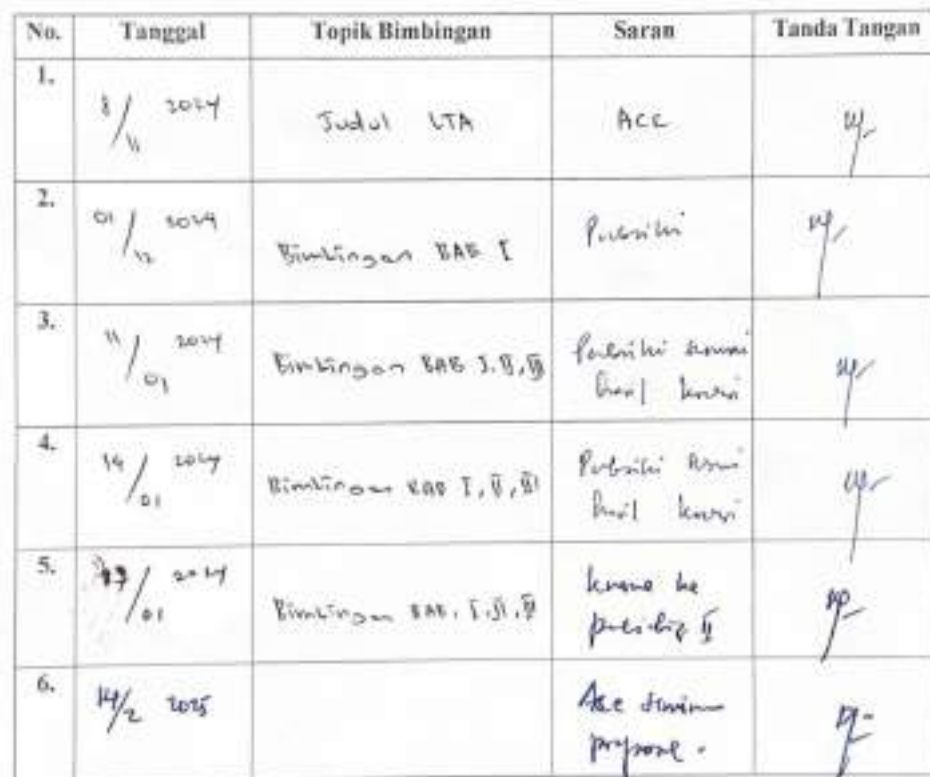 No. Tanggal Topik Bimbingan Saran Tanda Tangan
1. 8/11 2024 Judul LTA ACC
2. 01/12 2024 Bimbingan BAB I Perbaiki
3. 11/01 2024 Bimbingan BAB I, II, III Perbaiki sesuai
hasil koreksi
4. 14/01 2024 Bimbingan BAB I, II, III Perbaiki sesuai
hasil koreksi
5. /01 2024 Bimbingan BAB. I, II, III
6. 14/2 2025 Acc